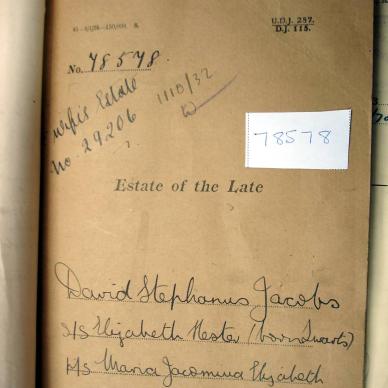 U.D.J. 287.
D.J. 115.
No. 78578.
Wife's Estate
No. 29206
1110/32
78578
Estate of the Late
David Stephanus Jacobs
s/s Elizabeth Hester (born Swarts)
p/s Maria Jacomina Elizabeth